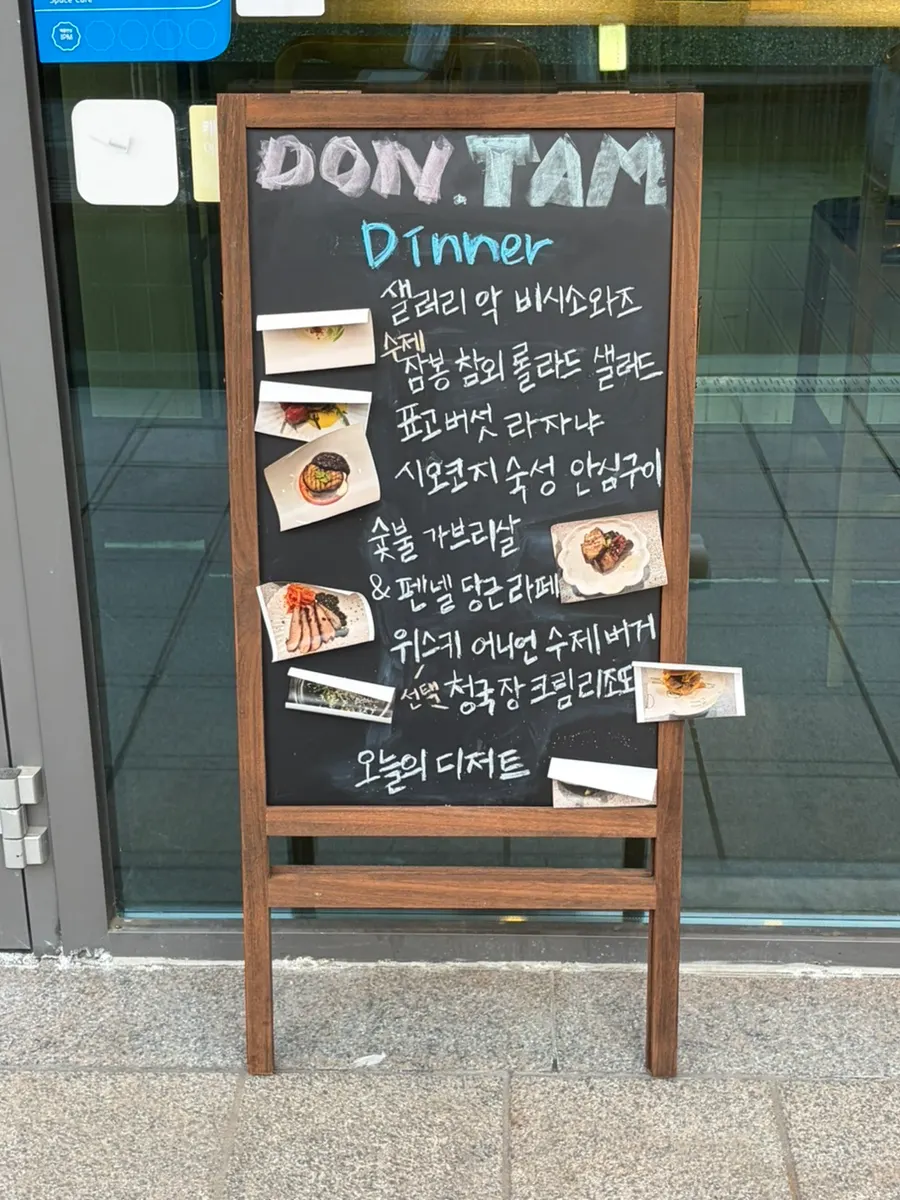 Space Care
DON.TAM
Dinner
샐러리악 비시소와즈
수제
잠봉 참외 롤라드 샐러드
표고버섯 라자냐
시오코지 숙성 안심구이
숯불 가브리살
& 펜넬 당근 라페
위스키 어니언 수제 버거
/
선택 청국장 크림 리조또
오늘의 디저트